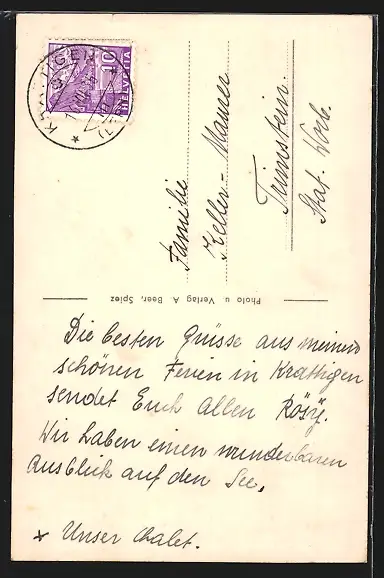 KRATTIGEN
10
HELVETIA
Familie
Keller-Maurer
Trimstein.
Stat. Worb.
Photo u. Verlag A. Beer, Spiez
Die besten Grüsse aus meinen
schönen Ferien in Krattigen
sendet Euch Allen Rösy.
Wir haben einen wunderbaren
Ausblick auf den See.
* Unser Chalet.